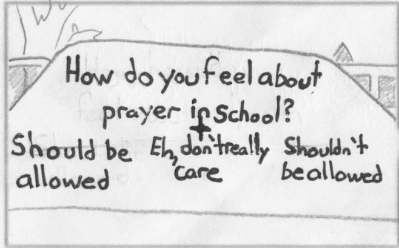 How do you feel about
prayer in school?
Should be allowed
Eh, don't really care
Shouldn't be allowed